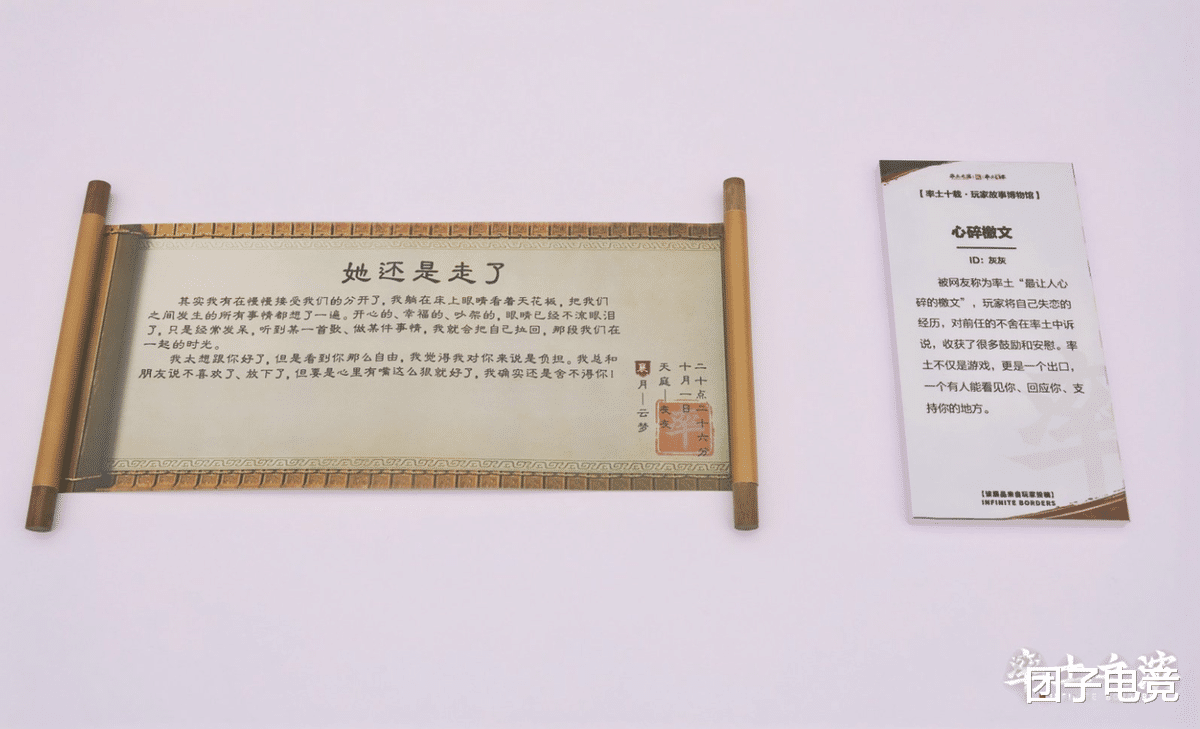 她还是走了
其实我有在慢慢接受我们的分开了，我躺在床上眼睛看着天花板，把我们
之间发生的所有事情都想了一遍。开心的、幸福的、吵架的，眼睛已经不流眼泪
了，只是经常发呆，听到某一首歌、做某件事情，我就会把自己拉回，那段我们在
一起的时光。
我太想跟你好了，但是看到你那么自由，我觉得我对你来说是负担。我总和
朋友说不喜欢了、放下了，但要是心里有嘴这么狠就好了，我确实还是舍不得你！
二十点二十六分
十月一日
天庭—灰灰
月—云梦
率土十载·玩家故事博物馆
【率土十载·玩家故事博物馆】
心碎檄文
ID：灰灰
被网友称为率土“最让人心
碎的檄文”，玩家将自己失恋的
经历，对前任的不舍在率土中诉
说，收获了很多鼓励和安慰。率
土不仅是游戏，更是一个出口，
一个有人能看见你、回应你、支
持你的地方。
【该展品来自玩家投稿】
INFINITE BORDERS
率土之滨
团子电竞